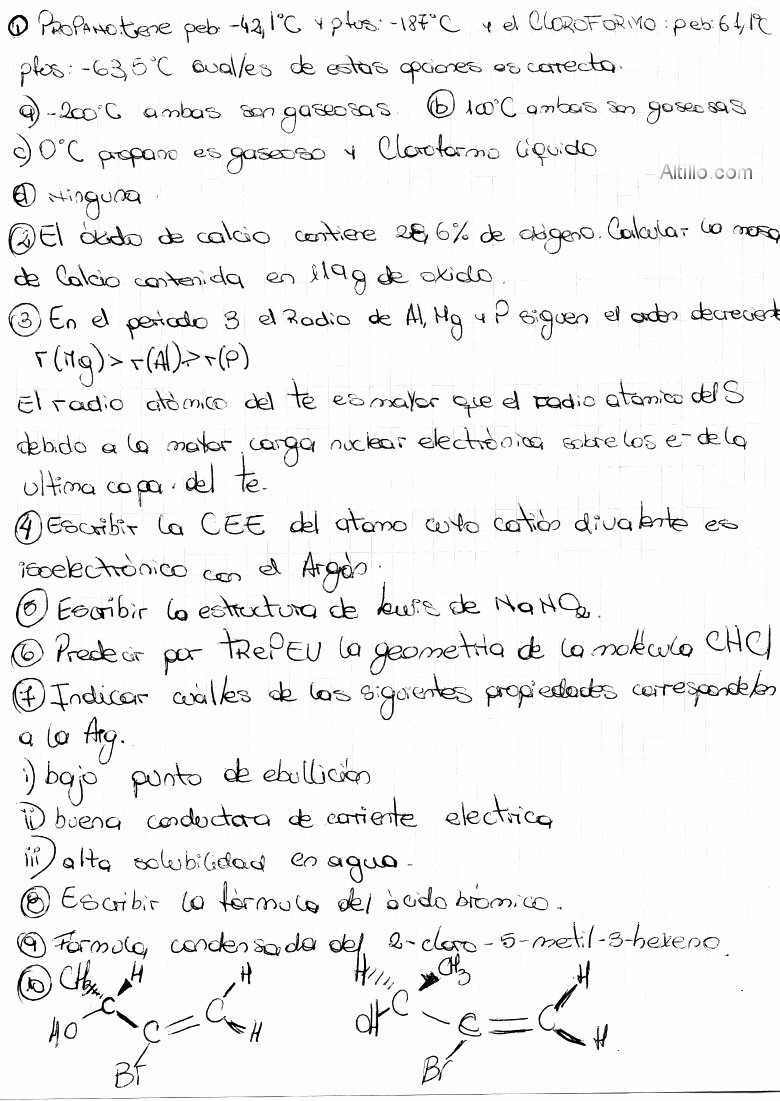 ① PROPANO tiene peb: -42,1°C y pfus: -187°C y el CLOROFORMO: peb: 61,1°C
pfus: -63,5°C cual/es de estas opciones es correcta.
a) -200°C ambas son gaseosas. b) 100°C ambas son gaseosas
c) 0°C propano es gaseoso y Cloroformo líquido
Altillo.com
d) Ninguna.
② El óxido de calcio contiene 28,6% de oxígeno. Calcular la masa
de Calcio contenida en 119g de oxido.
③ En el periodo 3 el Radio de Al, Mg y P siguen el orden decrecient
r(Mg) > r(Al) > r(P)
El radio atómico del Te es mayor que el radio atómico del S
debido a la mayor carga nuclear electrónica sobre los e- de la
ultima capa del Te.
④ Escribir la CEE del atomo cuyo catión divalente es
isoelectrónico con el Argón.
⑤ Escribir la estructura de Lewis de NaNO2.
⑥ Predecir por TRePEV la geometría de la molécula CHCl
⑦ Indicar cuál/es de las siguientes propiedades corresponde/n
a la Ag.
i) bajo punto de ebullición
ii) buena conductora de corriente electrica
iii) alta solubilidad en agua.
⑧ Escribir la fórmula del ácido brómico.
⑨ Formula condensada del 2-cloro-5-metil-3-hexeno.
⑩ CH3 H H H CH3 H
HO C C = C H OH C C = C H
Br Br